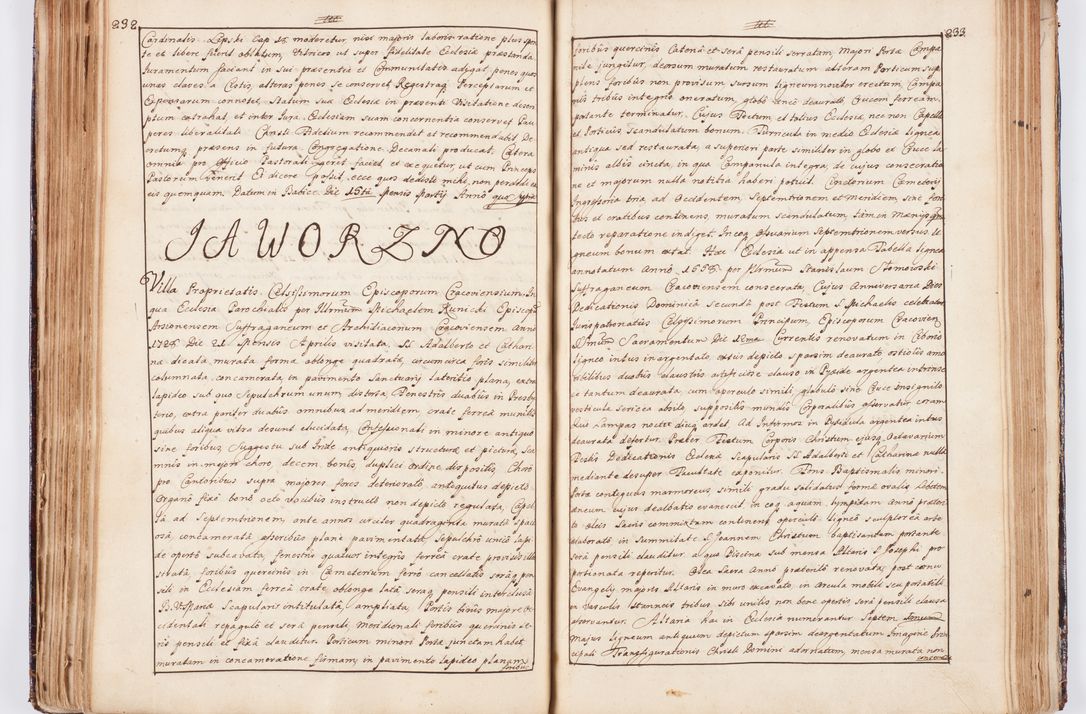 232
Cardinalis Lipski Cap 15 moderetur, nisi majoris laboris ratione plus sponte et libere fuerit oblatum, Vitricos ut super fidelitate Ecclesiæ præstanda
Juramentum faciant in sui præsentia et Communitatis adigat, penes quos
unas claves a Cistis, alteras penes se conservet, Regestra Perceptarum et
Expensarum connotet, Statum suæ Ecclesiæ in præsenti Visitatione descri
ptum extrahat et inter Jura Ecclesiam suam concernentia conservet Pau
peres liberalitati Christi Fidelium recommendet et recommendabit De
cretum præsens in futura Congregatione Decanali producat, Cætera
omnia pro Officio Pastorali geret faciet et exequetur, ut cum Principe
Pastorum venerit Ei dicere possit, ecce quos dedisti mihi, non perdidi ex
eis quemquam. Datum in Babice Die 15ta Mensis Martij Anno quo supra
JAWORZNO
Villa Proprietatis Celsissimorum Episcoporum Cracoviensium, In
qua Ecclesia Parochialis per Illrmum Michaelem Kunicki Episcopum
Arsonensem Suffraganeum et Archidiaconum Cracoviensem Anno
1728 Die 21 Mensis Aprilis visitata, SS Adalberto et Cathari
na dicata, murata, forma oblonge quadrata, circumcirca foris similibus
columnata, concamerata, in pavimento Sanctuarij lateritio, plana, extra
lapideo sub quo Sepulchrum unum, distincta, Fenestris duabus in Presby
terio, extra pariter duabus omnibus ad meridiem crate ferrea munitis
quibus aliqua vitra desunt elucidata, Confessionali in minore antiquo
sine foribus, Suggestu sub Inde antiquioris structuræ et picturæ, Sca
mnis in majori choro, decem bonis, duplici ordine dispositis, Choro
pro Cantoribus supra majores fores deteriorato, antiquitus depicto
Organo fixo bono octo vocibus instructo non depicto regulata, Capel
la ad Septemtrionem, ante annos circiter quadraginta murata spati
osa concamerata, asseribus plane pavimentata, Sepulchro unico lapi
de operto subcavata, fenestris quatuor integris ferrea crate provisis illu
strata, foribus quercinis in Cæmeterium ferro cancellatis sera pen
sili in Ecclesiam ferrea crate oblonga lata sera pensili interclusa
B. V. Mariæ Scapularis intitulata, ampliata, Portis binis majore Oc
cidentali repagulo et sera pensili, Meridionali foribus quercinis se
ra pensili et fixa clauditur, Porticum minori Porta junctam habet
muratam in concameratione firmam, in pavimento lapideo planam
foribus
233
foribus quercinis Catena et sera pensili serratam, Majori Porta Campa
nile jungitur, deorsum muratum restauratum alteram Porticum sup
plens foribus non provisum sursum ligneum noviter erectum, Campa
nis tribus integris oneratum, globo æneo deaurato, Crucem ferream
portante terminatur, Cujus Tectum et totius Ecclesiæ, nec non Capellæ
et Porticus Scandulatum bonum, Turricula in medio Ecclesiæ lignea
antiqua sed restaurata, a superiori parte similiter in globo et Cruce la
minis albis cincta, in qua Campanula integra, de cujus consecratio
ne et majorum nulla notitia haberi potuit, Conterium Cæmeterij
Ingressoria tria, ad Occidentem, Septemtrionem et Meridiem sine fori
bus et cratibus continens, muratum scindulatum tamen Mænijs in
tecto reparatione indiget, In eoq Ossuarium Septemtrionem versus Li
gneum bonum extat. Hæc Ecclesia ut in appensa Tabella lignea
annotatum Anno 1655 per Illrmum Stanislaum Słomowski
Suffraganeum Cracoviensem consecrata, Cujus Anniversaria Dies
Dedicationis Dominica secunda post Festum S. Michaelis celebratur
Jurispatronatus Celsissimorum Principum, Episcoporum Cracovien
SSmum Sacramentum Die 12ma Currentis renovatum in Ciborio
ligneo intus inargentato, extus depicto sparsim deaurato ostiolis amo
vibilibus duobus claustris artificiose clauso in Pyxide argentea intrinse
ce tantum deaurata, cum operculo simili globulo sine Cruce insignito
vesticula sericea absito, suppositis mundis Corporalibus asservatur, coram
quo Lampas nocte diuq ardet. Ad Infirmos in Pyxidula argentea intus
deaurata defertur, Præter Festum Corporis Christi cum ejusq Octavarium
Festa Dedicationis Ecclesiæ Scapularis SS Adalberti et Catharinæ nulla
mediante desuper Facultate exponitur. Fons Baptismalis minori
Porta contiguus marmoreus, simili gradu solidatus forma ovalis Lebetem
æneum cujus dealbatio evanescit in eoq aquam limpidam Anno præteri
to Oleis Sacris commixtam continens operculo ligneo sculptorea arte
elaborato in Summitate S Joannem Christum baptisantem portante
sera pensili clauditur, a quo Piscina sub mensa Altaris S Josephi pro
portionata reperitur. Olea Sacra Anno præterito renovata, post cornu
Evangely majoris Altaris in muro excavato, in arcula mobili seu portatili
in Vasculis Stanneis tribus sibi unitis non bene opertis sera pensili clausa
observantur. Altaria hæc in Ecclesia numerantur Septem
Majus ligneum antiquum depictum sparsim deargentatum Imagine prin
cipali Transfigurationis Christi Domini adornatum, mensa murata non